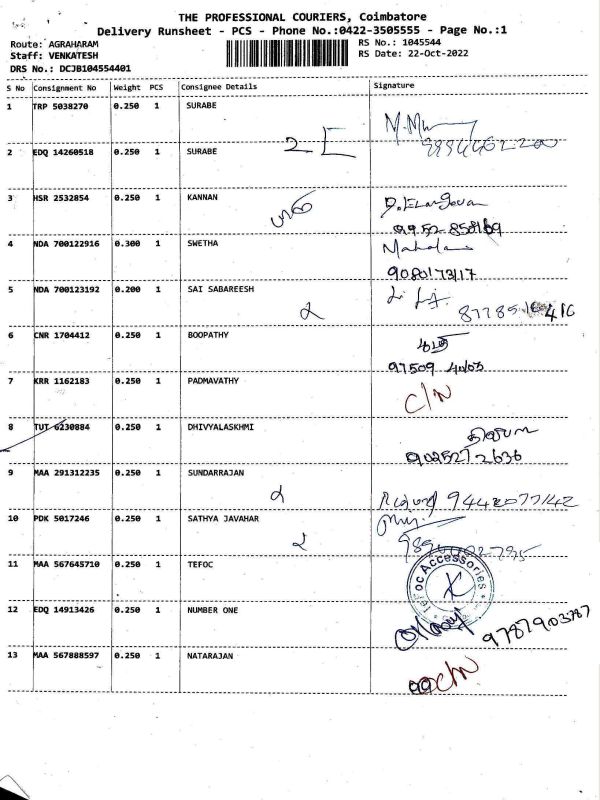 THE PROFESSIONAL COURIERS, Coimbatore
Delivery Runsheet - PCS - Phone No.:0422-3505555 - Page No.:1
Route: AGRAHARAM
RS No.: 1045544
Staff: VENKATESH
RS Date: 22-Oct-2022
DRS No.: DCJB104554401
S No Consignment No Weight PCS Consignee Details Signature
1 TRP 5038270 0.250 1 SURABE
2 EDQ 14260518 0.250 1 SURABE
3 HSR 2532854 0.250 1 KANNAN
4 NDA 700122916 0.300 1 SWETHA
9080173117
5 NDA 700123192 0.200 1 SAI SABAREESH
6 CNR 1704412 0.250 1 BOOPATHY
97509 40103
7 KRR 1162183 0.250 1 PADMAVATHY
C/N
8 TUT 6230884 0.250 1 DHIVYALASKHMI
9025272636
9 MAA 291312235 0.250 1 SUNDARRAJAN
9442077142
10 PDK 5017246 0.250 1 SATHYA JAVAHAR
11 MAA 567645710 0.250 1 TEFOC
TeFoc Accessories
12 EDQ 14913426 0.250 1 NUMBER ONE
9787903787
13 MAA 567888597 0.250 1 NATARAJAN
C/N